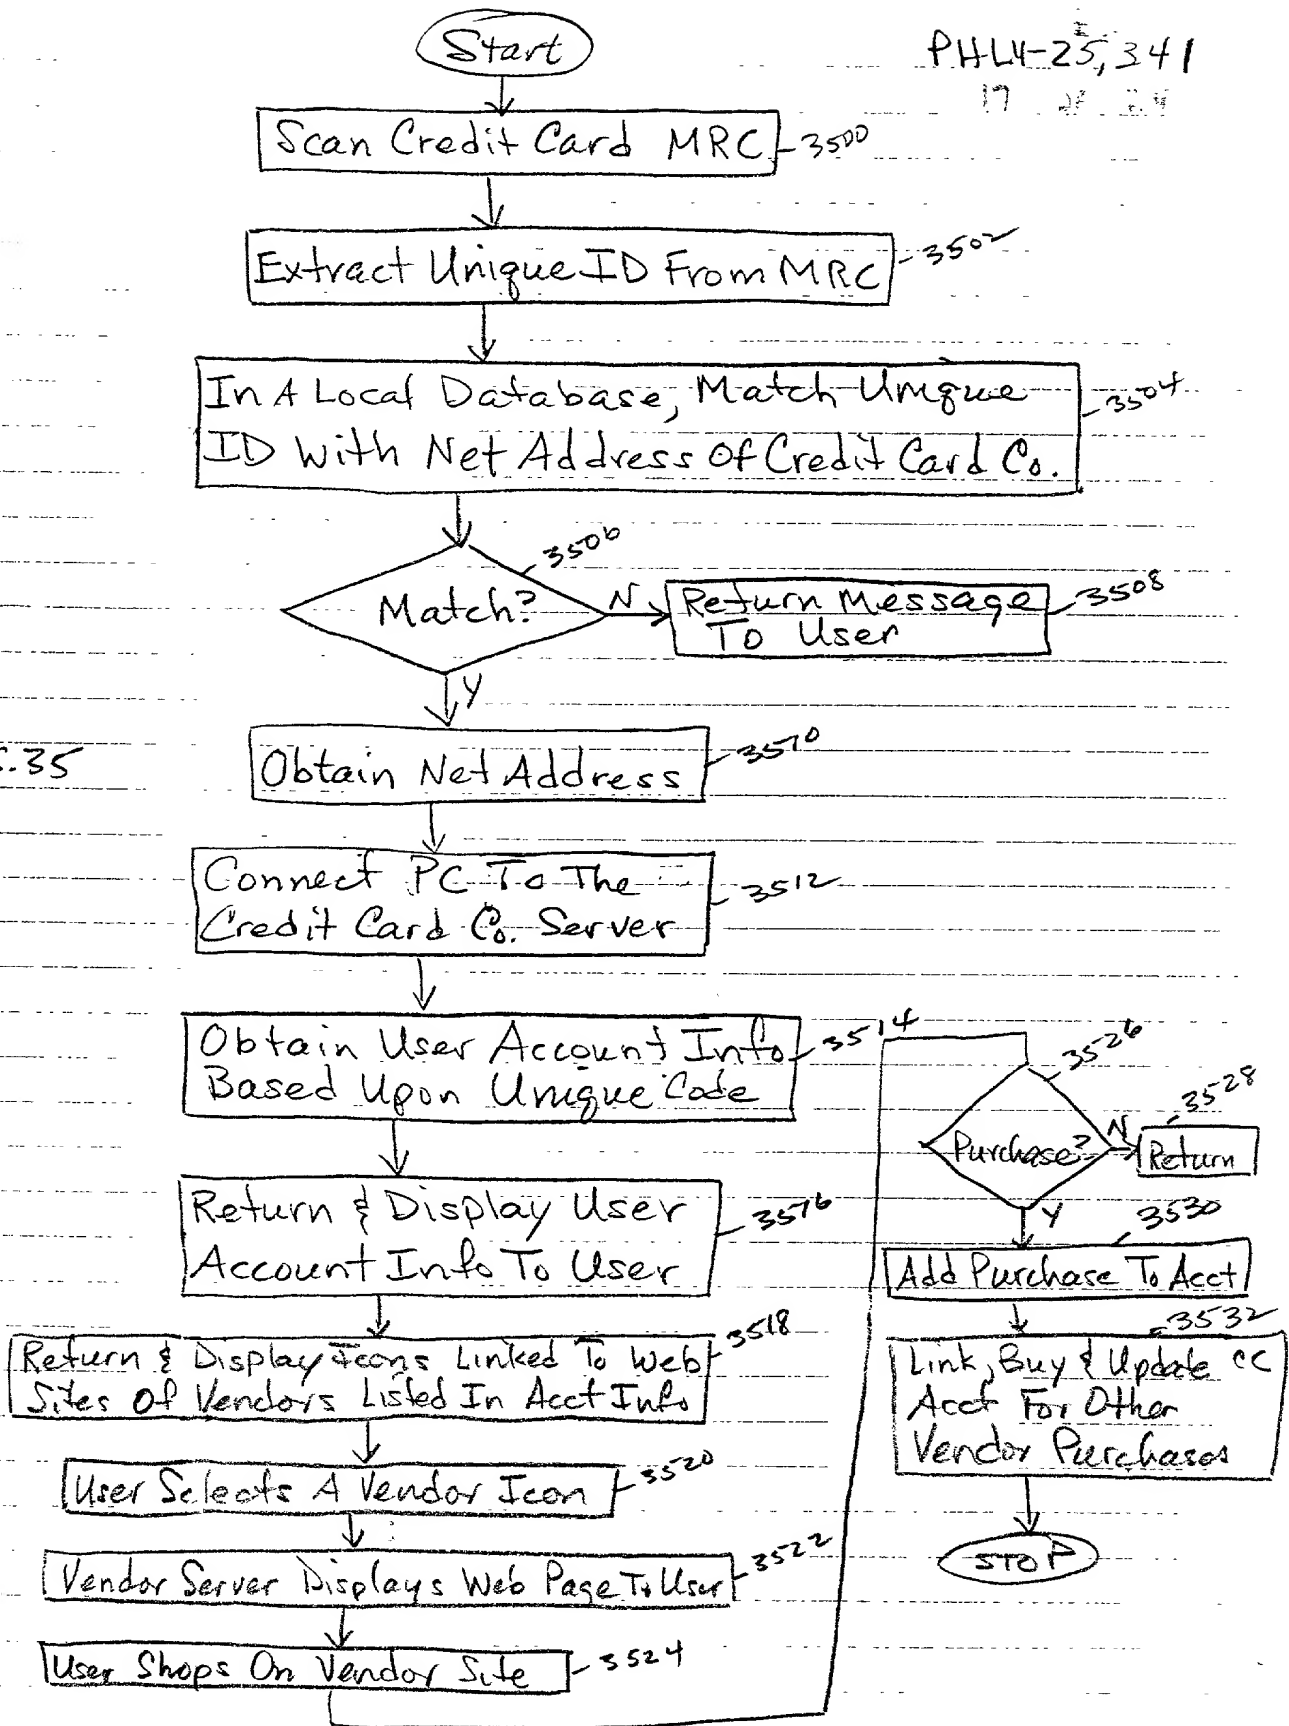 Start
PHLY-25,341
Scan Credit Card MRC
3500
Extract Unique ID From MRC
3502
In A Local Database, Match Unique
ID With Net Address Of Credit Card Co.
3504
3506
Match?
N
Return Message
To User
3508
Y
.35
Obtain Net Address
3510
Connect PC To The
Credit Card Co. Server
3512
Obtain User Account Info
Based Upon Unique Code
3514
Return & Display User
Account Info To User
3516
Return & Display Icons Linked To Web
Sites Of Vendors Listed In Acct Info
3518
User Selects A Vendor Icon
3520
Vendor Server Displays Web Page To User
3522
User Shops On Vendor Site
3524
3526
Purchase?
N
3528
Return
Y
3530
Add Purchase To Acct
3532
Link, Buy & Update CC
Acct For Other
Vendor Purchases
STOP